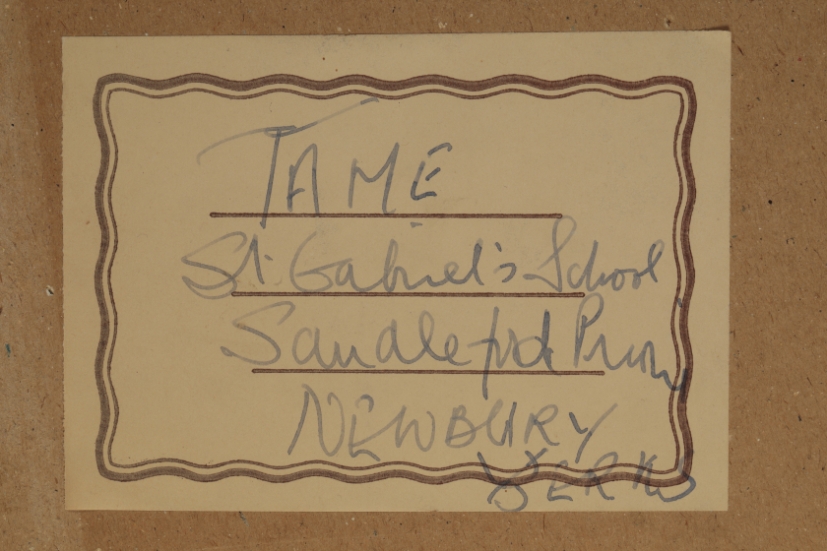 TAME
St. Gabriel's School
Sandleford Priory
NEWBURY
BERKS